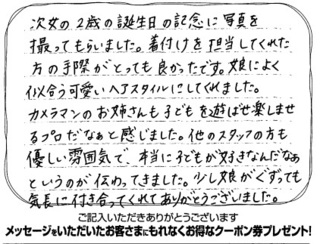 次女の2歳の誕生日の記念に写真を
撮ってもらいました。着付けを担当してくれた
方の手際がとっても良かったです。娘によく
似合う可愛いヘアスタイルにしてくれました。
カメラマンのお姉さんも子どもを遊ばせ楽しませ
るプロだなぁと感じました。他のスタッフの方も
優しい雰囲気で、本当に子どもが好きなんだなぁ
というのが伝わってきました。少し娘がぐずっても
気長に付き合ってくれてありがとうございました。
ご記入いただきありがとうございます
メッセージをいただいたお客さまにもれなくお得なクーポン券プレゼント!